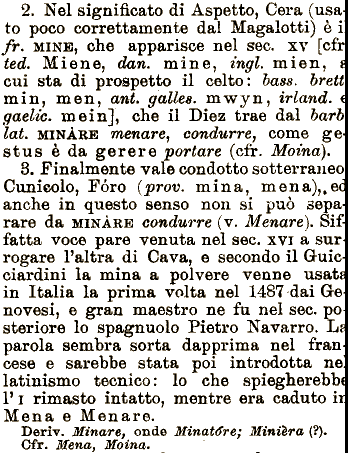 2. Nel significato di Aspetto, Cera (usa-
to poco correttamente dal Magalotti) è i
fr. MINE, che apparisce nel sec. XV [cfr
ted. Miene, dan. mine, ingl. mien,
cui sta di prospetto il celto: bass. brett
min, men, ant. galles. mwyn, irland. e
gaelic. mein], che il Diez trae dal barb
lat. MINÀRE menare, condurre, come ge-
stus è da gerere portare (cfr. Moina).
3. Finalmente vale condotto sotterraneo
Cunicolo, Fóro (prov. mina, mena), ed
anche in questo senso non si può sepa-
rare da MINÀRE condurre (v. Menare). Sif-
fatta voce pare venuta nel sec. XVI a sur-
rogare l'altra di Cava, e secondo il Guic-
ciardini la mina a polvere venne usata
in Italia la prima volta nel 1487 dai Ge-
novesi, e gran maestro ne fu nel sec. po-
steriore lo spagnuolo Pietro Navarro. La
parola sembra sorta dapprima nel fran-
cese e sarebbe stata poi introdotta nel
latinismo tecnico: lo che spiegherebbe
l'I rimasto intatto, mentre era caduto in
Mena e Menare.
Deriv. Minare, onde Minatóre; Minièra (?).
Cfr. Mena, Moina.